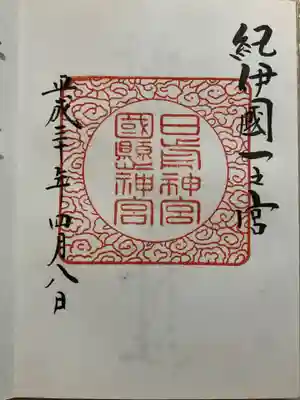 紀伊國一之宮
日前神宮
國懸神宮
平成年四月八日